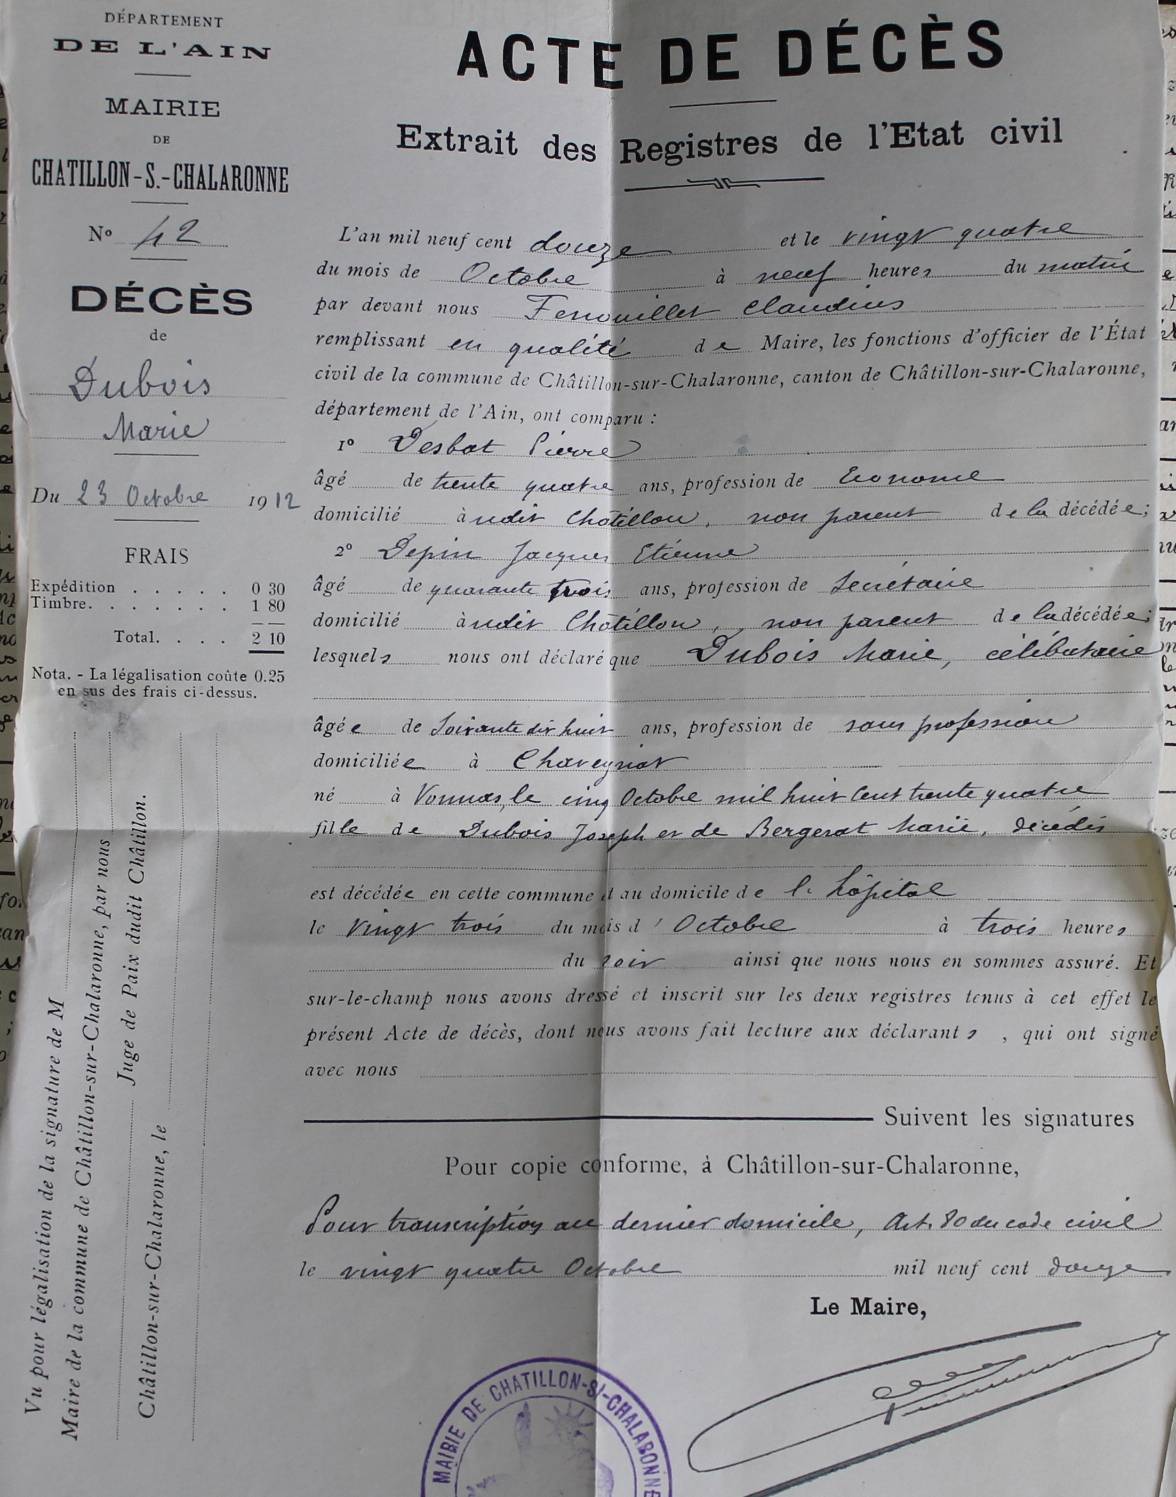 DÉPARTEMENT
DE L'AIN
MAIRIE
DE
CHATILLON-S.-CHALARONNE
N° 42
DÉCÈS
de
Dubois
Marie
Du 23 Octobre 1912
FRAIS
Expédition . . . . . 0 30
Timbre. . . . . . . 1 80
Total. . . . 2 10
Nota. - La légalisation coûte 0.25
en sus des frais ci-dessus.
Vu pour légalisation de la signature de M
Maire de la commune de Châtillon-sur-Chalaronne, par nous
Juge de Paix dudit Châtillon.
Châtillon-sur-Chalaronne, le
ACTE DE DÉCÈS
Extrait des Registres de l'Etat civil
L'an mil neuf cent douze et le vingt quatre
du mois de Octobre à neuf heures du matin
par devant nous Fenouillet Claudius
remplissant en qualité de Maire, les fonctions d'officier de l'État
civil de la commune de Châtillon-sur-Chalaronne, canton de Châtillon-sur-Chalaronne,
département de l'Ain, ont comparu :
1° Desbat Pierre
âgé de trente quatre ans, profession de Econome
domicilié à udit Châtillon, non parent de la décédée;
2° Depin Jacques Etienne
âgé de quarante trois ans, profession de Secrétaire
domicilié à udit Châtillon, non parent de la décédée;
lesquels nous ont déclaré que Dubois Marie, célibataire
âgée de Soixante dix huit ans, profession de sans profession
domiciliée à Chaveyriat
né à Vonnas, le cinq Octobre mil huit cent trente quatre
fille de Dubois Joseph et de Bergerat Marie, décédés
est décédée en cette commune au domicile de l'hôpital
le vingt trois du mois d'Octobre à trois heures
du soir ainsi que nous nous en sommes assuré. Et
sur-le-champ nous avons dressé et inscrit sur les deux registres tenus à cet effet le
présent Acte de décès, dont nous avons fait lecture aux déclarants , qui ont signé
avec nous
Suivent les signatures
Pour copie conforme, à Châtillon-sur-Chalaronne,
Pour transcription au dernier domicile, Art. 80 du code civil
le vingt quatre Octobre mil neuf cent douze
Le Maire,
MAIRIE DE CHATILLON-S/-CHALARONNE